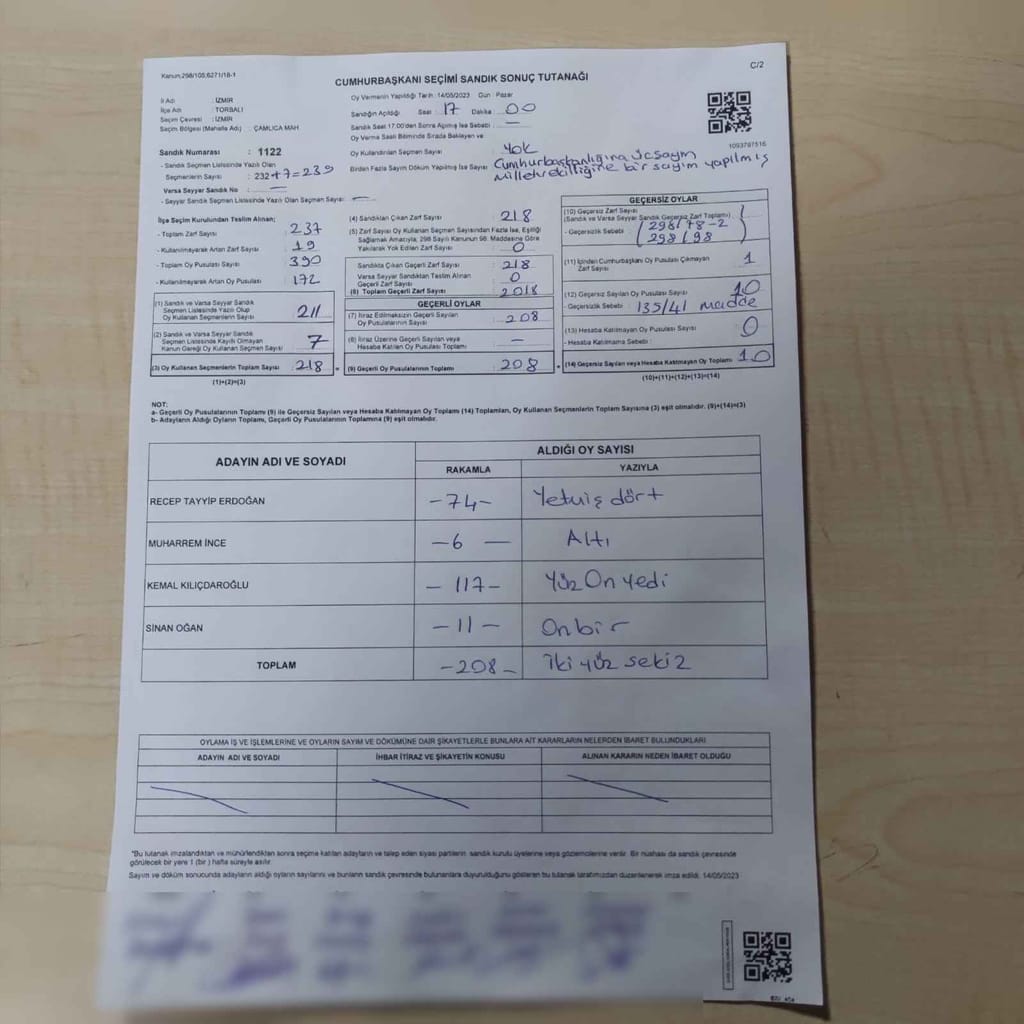 Kanun:298/105;6271/18-1
C/2
CUMHURBAŞKANI SEÇİMİ SANDIK SONUÇ TUTANAĞI
İl Adı : İZMİR
İlçe Adı : TORBALI
Seçim Çevresi : İZMİR
Seçim Bölgesi (Mahalle Adı) : ÇAMLICA MAH
Oy Vermenin Yapıldığı Tarih :14/05/2023 Gün : Pazar
Sandığın Açıldığı Saat 17 Dakika 00
Sandık Saat 17:00'den Sonra Açılmış İse Sebebi : —
Oy Verme Saati Bitiminde Sırada Bekleyen ve
Oy Kullandırılan Seçmen Sayısı : Yok
Birden Fazla Sayım Döküm Yapılmış İse Sayısı : Cumhurbaşkanlığına üç sayım
Milletvekilliğine bir sayım yapılmış
1093797516
Sandık Numarası : 1122
- Sandık Seçmen Listesinde Yazılı Olan
Seçmenlerin Sayısı : 232+7=239
Varsa Seyyar Sandık No : —
- Seyyar Sandık Seçmen Listesinde Yazılı Olan Seçmen Sayısı : —
İlçe Seçim Kurulundan Teslim Alınan;
- Toplam Zarf Sayısı : 237
- Kullanılmayarak Artan Zarf Sayısı : 19
- Toplam Oy Pusulası Sayısı : 390
- Kullanılmayarak Artan Oy Pusulası : 172
(1) Sandık ve Varsa Seyyar Sandık
Seçmen Listesinde Yazılı Olup
Oy Kullanan Seçmenlerin Sayısı : 211
(2) Sandık ve Varsa Seyyar Sandık
Seçmen Listesinde Kayıtlı Olmayan
Kanun Gereği Oy Kullanan Seçmen Sayısı : 7
(3) Oy Kullanan Seçmenlerin Toplam Sayısı : 218 =
(1)+(2)=(3)
(4) Sandıktan Çıkan Zarf Sayısı : 218
(5) Zarf Sayısı Oy Kullanan Seçmen Sayısından Fazla İse, Eşitliği
Sağlamak Amacıyla; 298 Sayılı Kanunun 98. Maddesine Göre
Yakılarak Yok Edilen Zarf Sayısı : 0
Sandıkta Çıkan Geçerli Zarf Sayısı : 218
Varsa Seyyar Sandıktan Teslim Alınan
Geçerli Zarf Sayısı : 0
(6) Toplam Geçerli Zarf Sayısı : 2018
GEÇERLİ OYLAR
(7) İtiraz Edilmeksizin Geçerli Sayılan
Oy Pusulalarının Sayısı : 208
(8) İtiraz Üzerine Geçerli Sayılan veya
Hesaba Katılan Oy Pusulası Toplamı : —
(9) Geçerli Oy Pusulalarının Toplamı : 208 +
GEÇERSİZ OYLAR
(10) Geçersiz Zarf Sayısı
(Sandık ve Varsa Seyyar Sandık Geçersiz Zarf Toplamı)
- Geçersizlik Sebebi : 298/78-2
298/98
(11) İçinden Cumhurbaşkanı Oy Pusulası Çıkmayan
Zarf Sayısı : 1
(12) Geçersiz Sayılan Oy Pusulası Sayısı : 10
- Geçersizlik Sebebi : 135/41 madde
(13) Hesaba Katılmayan Oy Pusulası Sayısı : 0
- Hesaba Katılmama Sebebi :
(14) Geçersiz Sayılan veya Hesaba Katılmayan Oy Toplamı : 10
(10)+(11)+(12)+(13)=(14)
NOT:
a- Geçerli Oy Pusulalarının Toplamı (9) ile Geçersiz Sayılan veya Hesaba Katılmayan Oy Toplamı (14) Toplamları, Oy Kullanan Seçmenlerin Toplam Sayısına (3) eşit olmalıdır. (9)+(14)=(3)
b- Adayların Aldığı Oyların Toplamı, Geçerli Oy Pusulalarının Toplamına (9) eşit olmalıdır.
ADAYIN ADI VE SOYADI
ALDIĞI OY SAYISI
RAKAMLA YAZIYLA
RECEP TAYYİP ERDOĞAN -74- Yetmiş dört
MUHARREM İNCE -6 — Altı
KEMAL KILIÇDAROĞLU -117- Yüz On yedi
SİNAN OĞAN -11- On bir
TOPLAM -208- İki yüz sekiz
OYLAMA İŞ VE İŞLEMLERİNE VE OYLARIN SAYIM VE DÖKÜMÜNE DAİR ŞİKAYETLERLE BUNLARA AİT KARARLARIN NELERDEN İBARET BULUNDUKLARI
ADAYIN ADI VE SOYADI İHBAR İTİRAZ VE ŞİKAYETİN KONUSU ALINAN KARARIN NEDEN İBARET OLDUĞU
*Bu tutanak imzalandıktan ve mühürlendikten sonra seçime katılan adayların ve talep eden siyasi partilerin sandık kurulu üyelerine veya gözlemcilerine verilir. Bir nüshası da sandık çevresinde
görülecek bir yere 1 (bir ) hafta süreyle asılır.
Sayım ve döküm sonucunda adayların aldığı oyların sayılarını ve bunların sandık çevresinde bulunanlara duyurulduğunu gösteren bu tutanak tarafımızdan düzenlenerek imza edildi. 14/05/2023